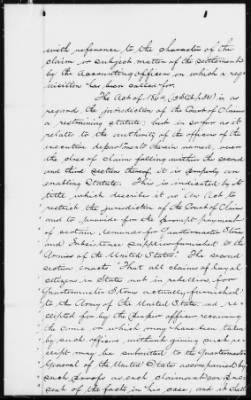 with reference to the character of the
claim or subject matter of the settlement
by the accounting officers on which a req
uisition has been called for.
The Act of 1864, is as
regards the jurisdiction of the Court of Claims
a restraining statute; but in so far as it
relates to the authority of the officers of the
executive departments therein named, over
the class of claims falling within the second
and third section thereof, it is simply an
enabling Statute. This is indicated by its
title which describes it as "An Act to
restrict the jurisdiction of the Court of Claims
and to provide for the prompt payment
of certain demands for Quartermaster Stores
and Subsistence supplies furnished to the
Armies of the United States." The second
section enacts "That all claims of loyal
citizens in States not in rebellion, for
Quartermaster Stores actually furnished
to the Army of the United States, and re
ceipted for by the proper officer receiving
the same or which may have been taken
by such officers, without giving such re-
ceipt may be submitted to the Quartermaster
General of the United States accompanied by
such proofs as each claimant can pre
sent of the facts in his case, and it shall